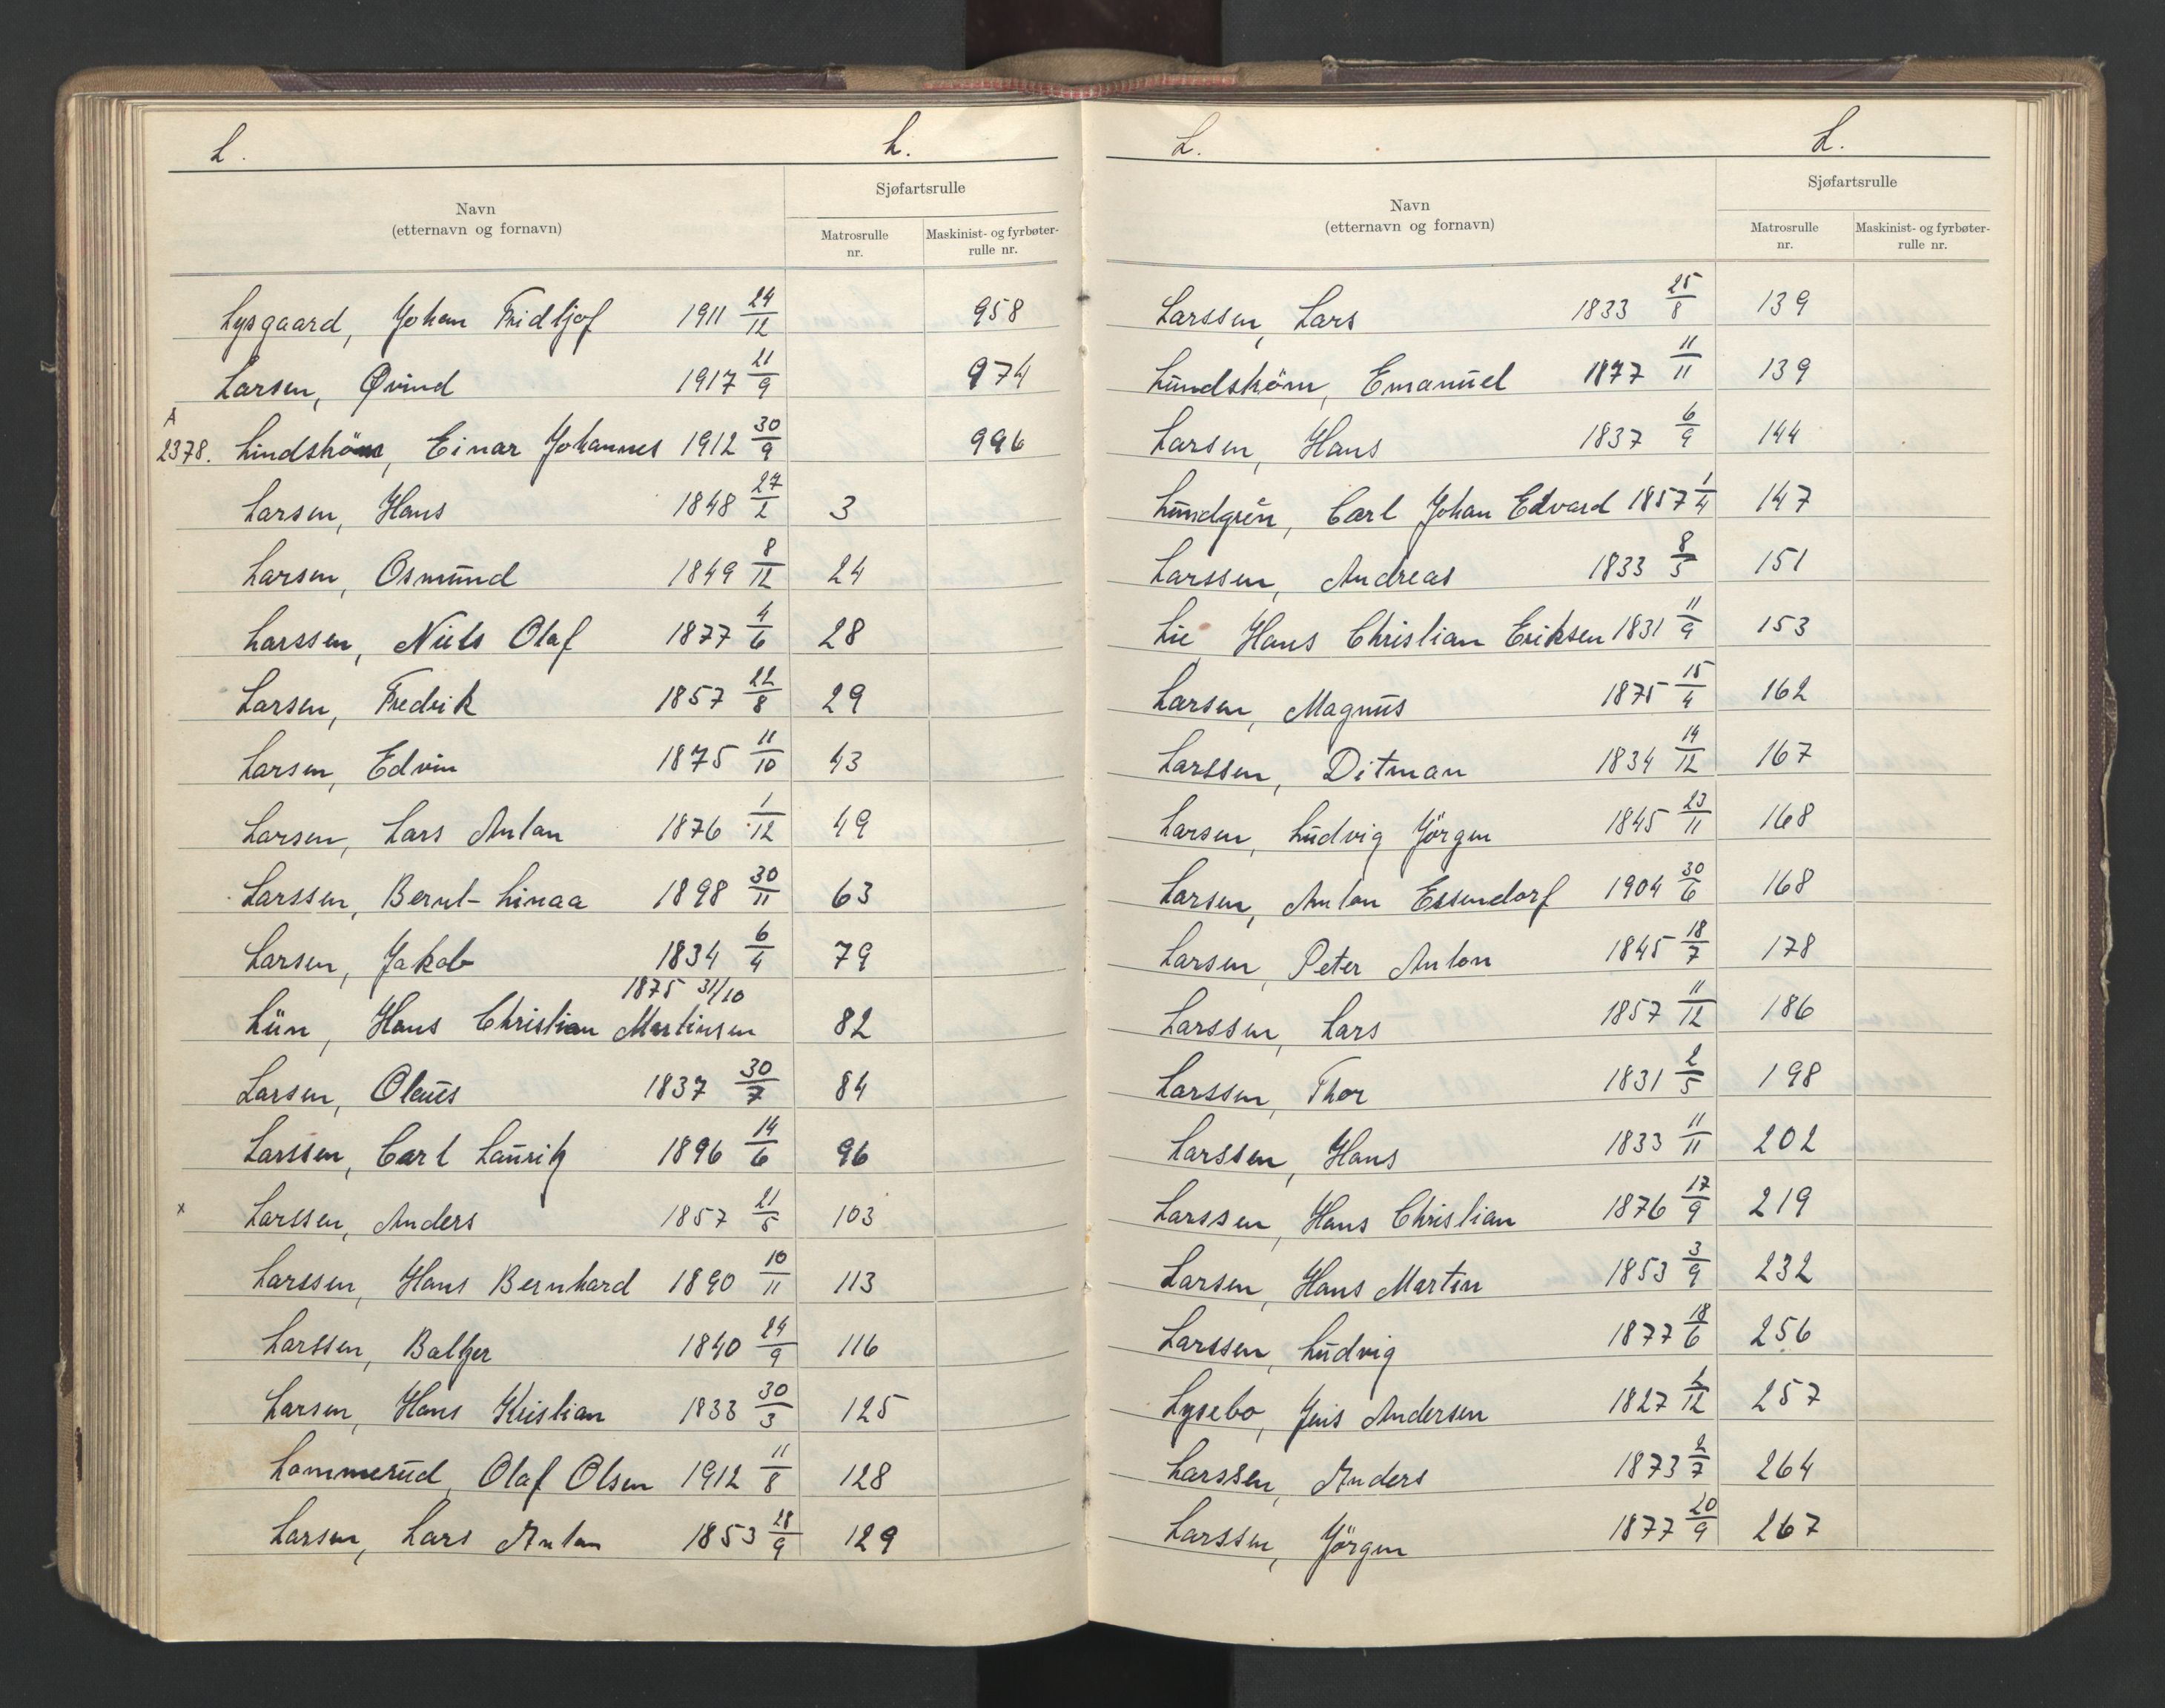 L. L.
Navn
(etternavn og fornavn)
Sjøfartsrulle
Matrosrulle
nr.
Maskinist- og fyrbøter-
rulle nr.
Lysgaard, Johan Fridtjof 1911 24/12 958
Larsen, Øvind 1917 21/9 974
A
2378. Lindström, Einar Johannes 1912 30/9 996
Larsen, Hans 1848 27/2 3
Larsen, Osmund 1849 8/12 24
Larssen, Niels Olaf 1877 4/6 28
Larsen, Fredrik 1857 22/8 29
Larsen, Edvin 1875 11/10 43
Larsen, Lars Anton 1876 1/12 49
Larssen, Bernt-Linaa 1898 30/11 63
Larsen, Jakob 1834 6/4 79
1875 31/10
Lün, Hans Christian Martinsen 82
Larsen, Olaus 1837 30/7 84
Larssen, Carl Lauritz 1896 14/6 96
x Larssen, Anders 1857 21/5 103
Larssen, Hans Bernhard 1890 10/11 113
Larssen, Baltzer 1840 24/9 116
Larsen, Hans Kristian 1833 30/3 125
Lommerud, Olaf Olsen 1912 11/8 128
Larsen, Lars Anton 1853 28/9 129
L. L.
Navn
(etternavn og fornavn)
Sjøfartsrulle
Matrosrulle
nr.
Maskinist- og fyrbøter-
rulle nr.
Larssen, Lars 1833 25/8 139
Lundström, Emanuel 1877 11/11 139
Larsen, Hans 1837 6/9 144
Lundgrén, Carl Johan Edvard 1857 1/4 147
Larssen, Andreas 1833 8/5 151
Lie Hans Christian Eriksen 1831 11/9 153
Larsen, Magnus 1875 15/4 162
Larssen, Ditman 1834 14/12 167
Larsen, Ludvig Jörgen 1845 23/11 168
Larsen, Anton Essendorf 1904 30/6 168
Larsen, Peter Anton 1845 18/7 178
Larssen, Lars 1857 11/12 186
Larssen, Thor 1831 2/5 198
Larssen, Hans 1833 11/11 202
Larssen, Hans Christian 1876 17/9 219
Larsen, Hans Martin 1853 3/9 232
Larssen, Ludvig 1877 18/6 256
Lysebo, Jens Andersen 1827 2/12 257
Larssen, Anders 1873 2/7 264
Larssen, Jörgen 1877 20/9 267